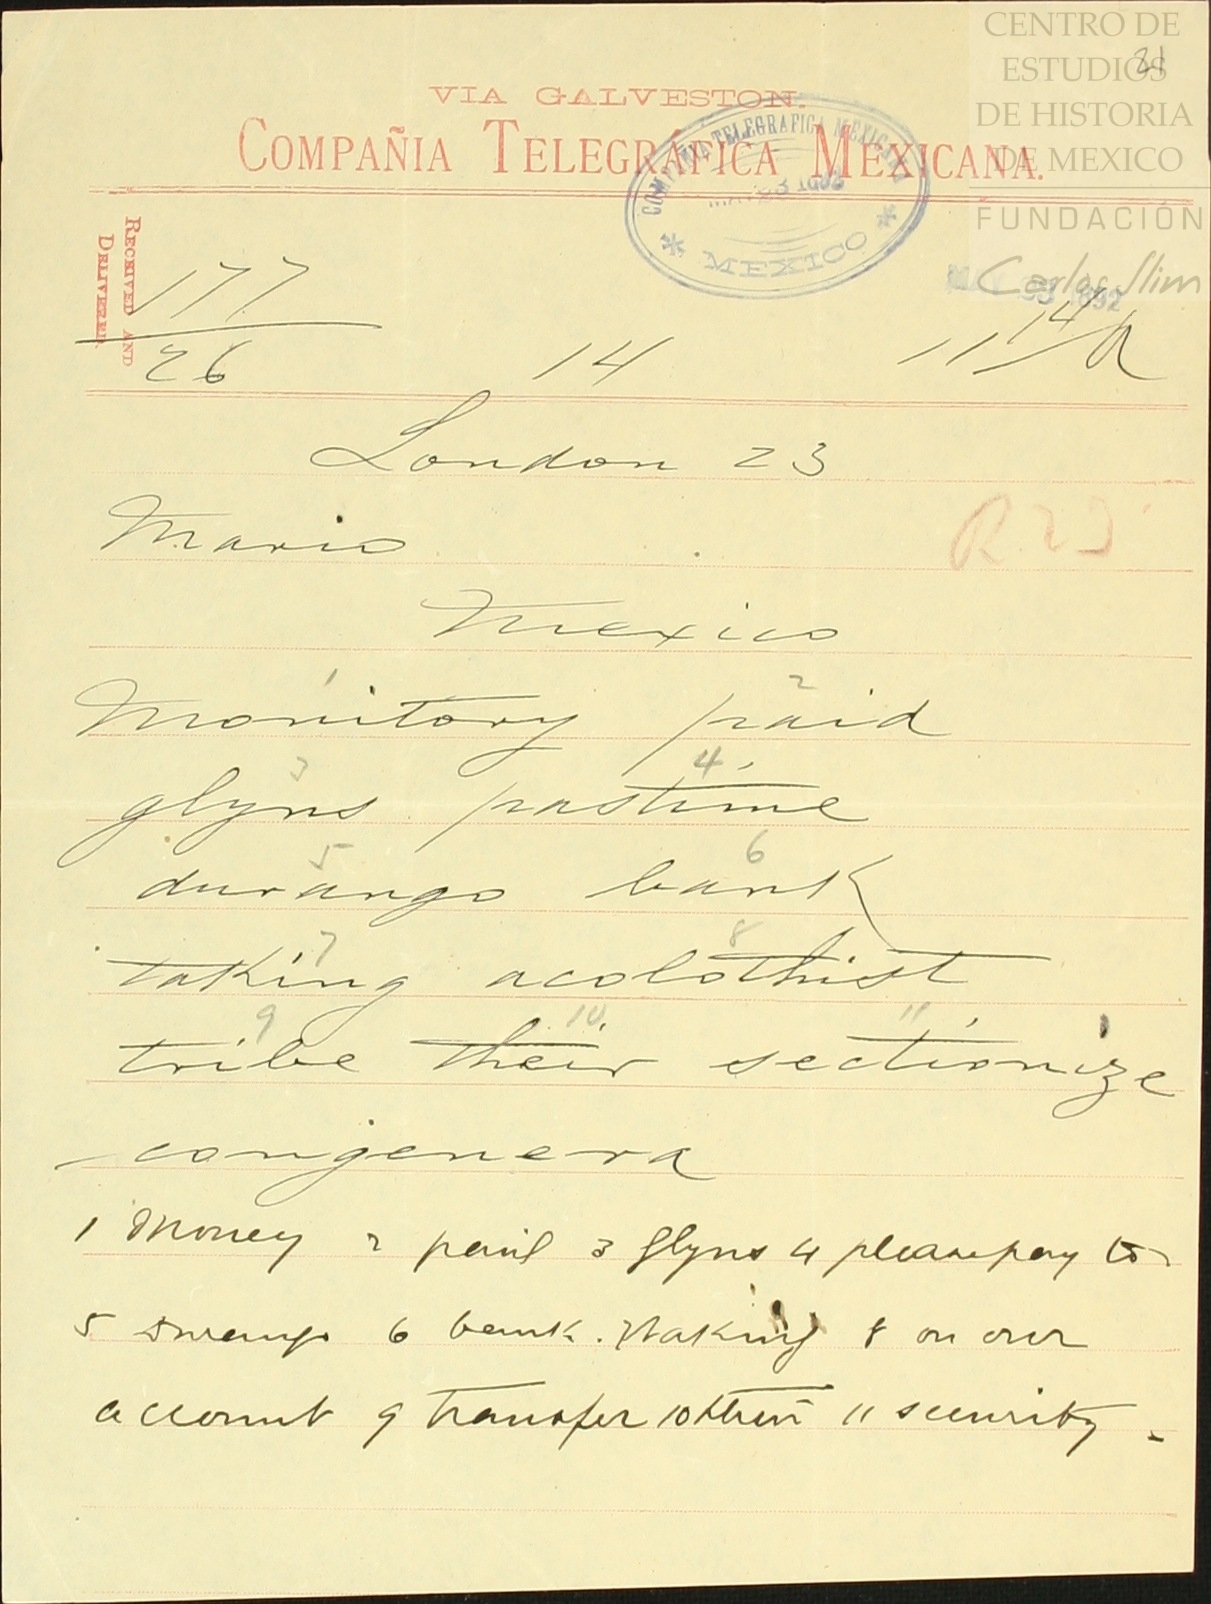 CENTRO DE
ESTUDIOS
DE HISTORIA
DE MEXICO
FUNDACIÓN
Carlos Slim
21
VIA GALVESTON.
COMPAÑIA TELEGRÁFICA MEXICANA.
COMPAÑIA TELEGRAFICA MEXICANA
1892
* MEXICO *
1892
RECEIVED AND
DELIVERED
177
26 14 11 14/A
London 23
Mario
R 23
Mexico
1 2
Monitory paid
3 4
glyns pastime
5 6
durango bank
7 8
taking acolothist
9 10 11
tribe their sectionize
congenera
1 Money 2 paid 3 Glyns 4 please pay to
5 Durango 6 bank. 7 taking 8 on our
account 9 transfer 10 their 11 security.